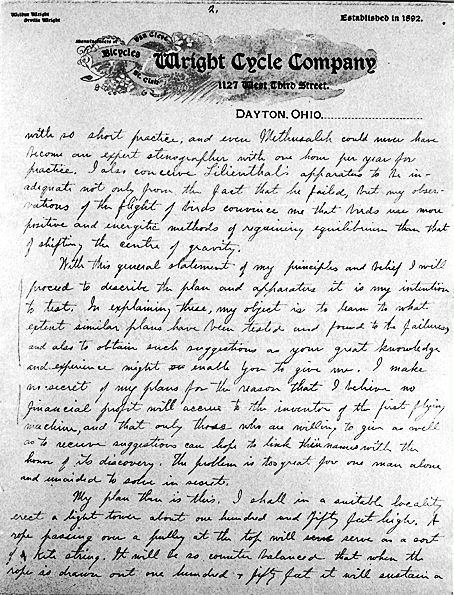 2.
Wilbur Wright
Orville Wright
Established in 1892.
Manufacturers of
Van Cleve
Bicycles
St. Clair
Wright Cycle Company
1127 West Third Street.
DAYTON, OHIO.
with so short practice, and even Methuselah could never have
become an expert stenographer with one hour per year for
practice. I also conceive Lilienthal's apparatus to be in-
adequate not only from the fact that he failed, but my obser-
vations of the flight of birds convince me that birds use more
positive and energetic methods of regaining equilibrium than that
of shifting the centre of gravity.
With this general statement of my principles and belief I will
proceed to describe the plan and apparatus it is my intention
to test. In explaining these, my object is to learn to what
extent similar plans have been tested and found to be failures,
and also to obtain such suggestions as your great knowledge
and experience might enable you to give me. I make
no secret of my plans for the reason that I believe no
financial profit will accrue to the inventor of the first flying
machine, and that only those who are willing to give as well
as to receive suggestions can hope to link their names with the
honor of its discovery. The problem is too great for one man alone
and unaided to solve in secret.
My plan then is this. I shall in a suitable locality
erect a light tower about one hundred and fifty feet high. A
rope passing over a pulley at the top will serve as a sort
of kite string. It will be so counter balanced that when the
rope is drawn out one hundred & fifty feet it will sustain a